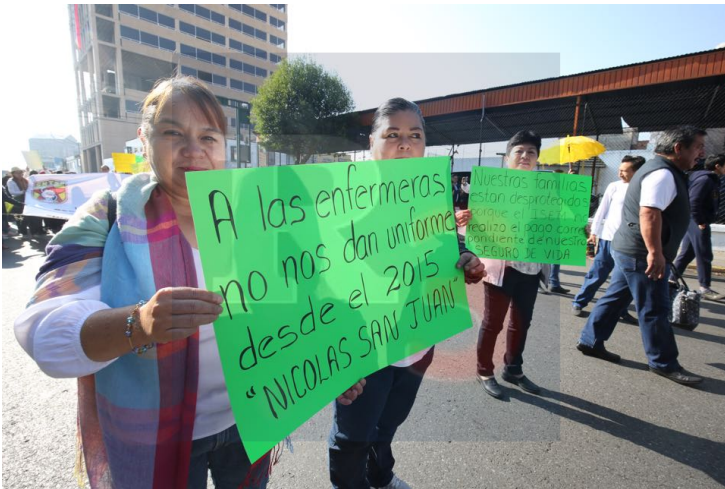 A las enfermeras
no nos dan uniforme
desde el 2015
"NICOLAS SAN JUAN"
Nuestras familias
estan desprotegidas
porque el ISEM no
realizo el pago corres
pondiente de nuestro
SEGURO DE VIDA